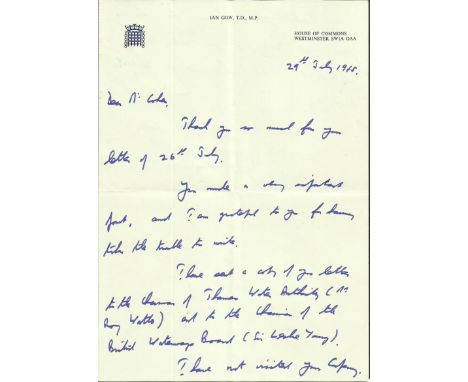 IAN GOW, T.D., M.P.
HOUSE OF COMMONS
WESTMINSTER SW1A 0AA
29th July 1985.
Dear Mr Cohen,
Thank you so much for your
letter of 26th July.
You make a very important
point, and I am grateful to you for having
taken the trouble to write.
I have sent a copy of your letter
to the Chairman of Thames Water Authority (Mr
Roy Watts) and to the Chairman of the
British Waterways Board (Sir Leslie Young).
I have not visited your Company,